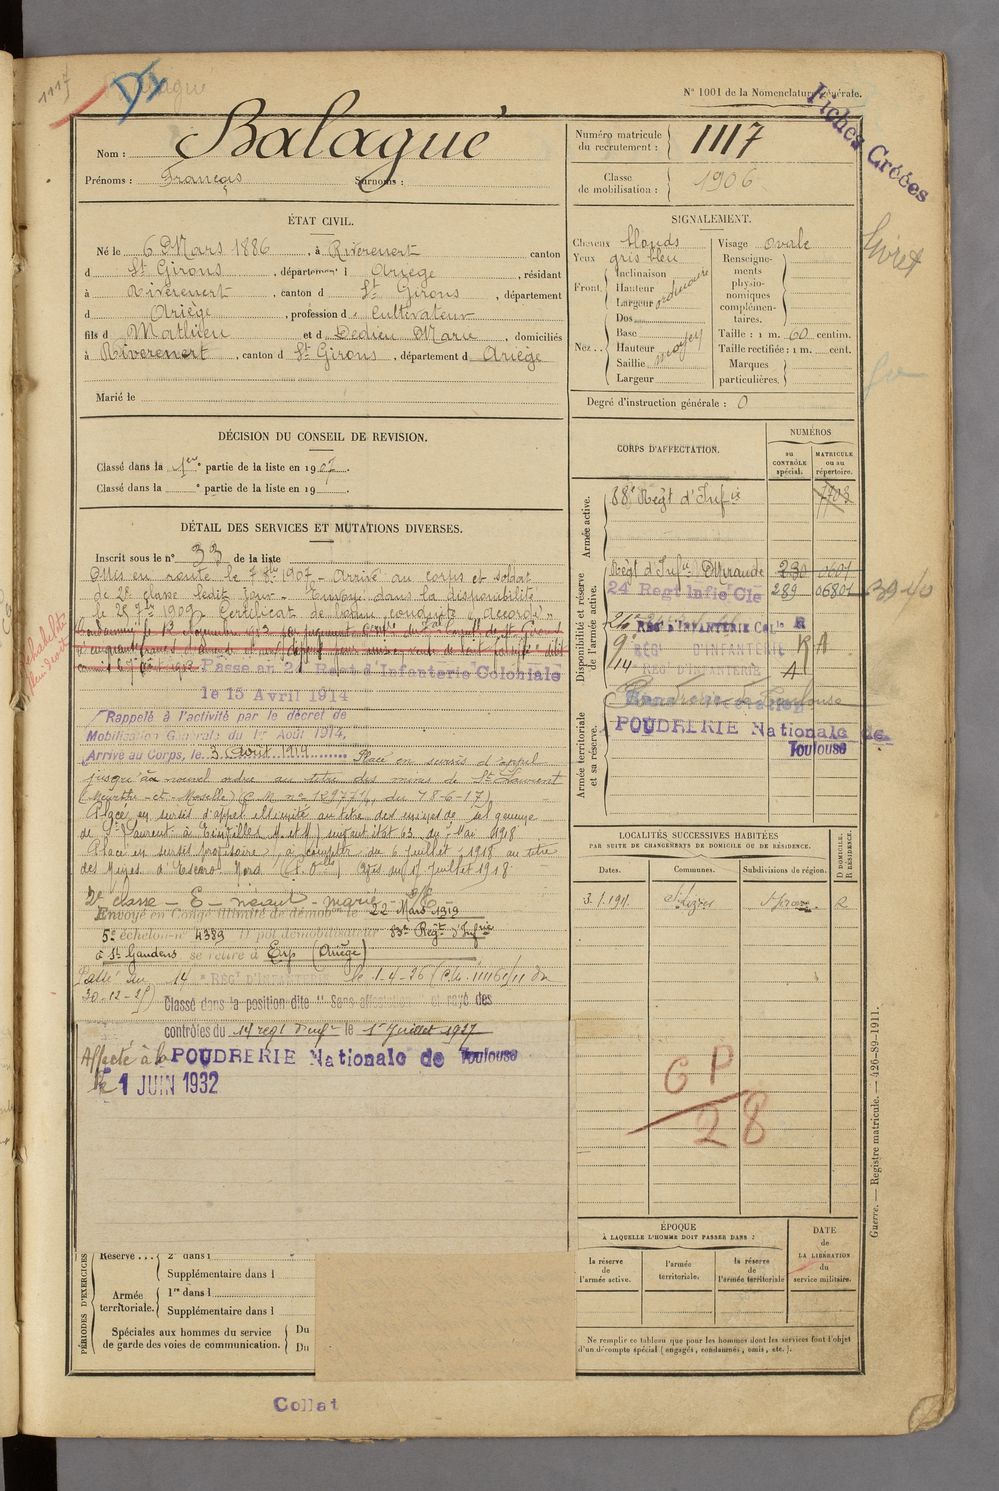 1117
N° 1001 de la Nomenclature générale.
Fiches Créées
Nom : Balagué
Prénoms : François Surnoms :
Numéro matricule du recrutement : 1117
Classe de mobilisation : 1906
Livret
ÉTAT CIVIL.
Né le 6 Mars 1886, à Rivèrenert canton
d St Girons, département d Ariège, résidant
à Rivèrenert, canton d St Girons, département
d Ariège, profession d Cultivateur
fils d Mathieu et d Dedieu Marie, domiciliés
à Rivèrenert, canton d St Girons, département d Ariège
Marié le
SIGNALEMENT.
Cheveux blonds
Yeux gris bleu
Front. Inclinaison
Hauteur
Largeur
ordinaire
Nez.. Dos
Base
Hauteur
Saillie
Largeur
moyen
Visage ovale
Renseignements physionomiques complémentaires.
Taille : 1 m. 60 centim.
Taille rectifiée : 1 m. cent.
Marques particulières.
Degré d'instruction générale : 0
DÉCISION DU CONSEIL DE REVISION.
Classé dans la 1ere partie de la liste en 1907.
Classé dans la e partie de la liste en 19 .
DÉTAIL DES SERVICES ET MUTATIONS DIVERSES.
Inscrit sous le n° 33 de la liste
Mis en route le 7 8bre 1907 - Arrivé au corps et soldat
de 2e classe ledit jour - Envoyé dans la disponibilité
le 25 7bre 1909 Certificat de bonne conduite "Accordé"
Passé au 24 Regt d'Infanterie Coloniale
le 15 Avril 1914
Rappelé à l'activité par le décret de
Mobilisation Générale du 1er Août 1914.
Arrivé au Corps, le 3 Août 1914 Placé en sursis d'appel
jusqu'à nouvel ordre au titre des mines de St Laurent
(Meurthe-et-Moselle)
Placé en sursis d'appel
Placé en sursis provisoire, à compter du 6 Juillet 1918 au titre
des Mines d'Escaro Nord
2e classe - E - néant - marié
Envoyé en Congé illimité de démob. le 22 Mars 1919
5e échelon n° 4383 Dépôt démobilisateur 83e Regt d'Infrie
à St Gaudens se retire à Erp (Ariège)
Passé au 14e RÉGt D'INFANTERIE le 1-4-26
Classé dans la position dite "Sans affectation" et rayé des
contrôles du 14 regt d'infie le 1er Juillet 1927
Affecté à la POUDRERIE Nationale de Toulouse
le 1 JUIN 1932
CORPS D'AFFECTATION.
NUMÉROS
au CONTRÔLE spécial.
MATRICULE ou au répertoire.
Armée active.
88e Regt d'Infie
Disponibilité et réserve de l'armée active.
Regt d'Infie Mirande 230 0601
24 Regt Infie Cle 289 06801
RÉGt D'INFANTERIE Colle R
9e RÉGt D'INFANTERIE R A
14 RÉGt D'INFANTERIE A
Armée territoriale et sa réserve.
POUDRERIE Nationale de Toulouse
LOCALITÉS SUCCESSIVES HABITÉES
PAR SUITE DE CHANGEMENTS DE DOMICILE OU DE RÉSIDENCE.
D DOMICILE. R RÉSIDENCE.
Dates. Communes. Subdivisions de région.
GP
28
PÉRIODES D'EXERCICES
Réserve ... 2e dans l
Supplémentaire dans l
Armée territoriale. 1re dans l
Supplémentaire dans l
Spéciales aux hommes du service de garde des voies de communication. Du
Du
ÉPOQUE
À LAQUELLE L'HOMME DOIT PASSER DANS :
la réserve de l'armée active.
l'armée territoriale.
la réserve de l'armée territoriale
DATE de LA LIBÉRATION du service militaire.
Ne remplir ce tableau que pour les hommes dont les services font l'objet
d'un décompte spécial (engagés, condamnés, omis, etc.).
Guerre. — Registre matricule. — 426-89-1911.
Collat